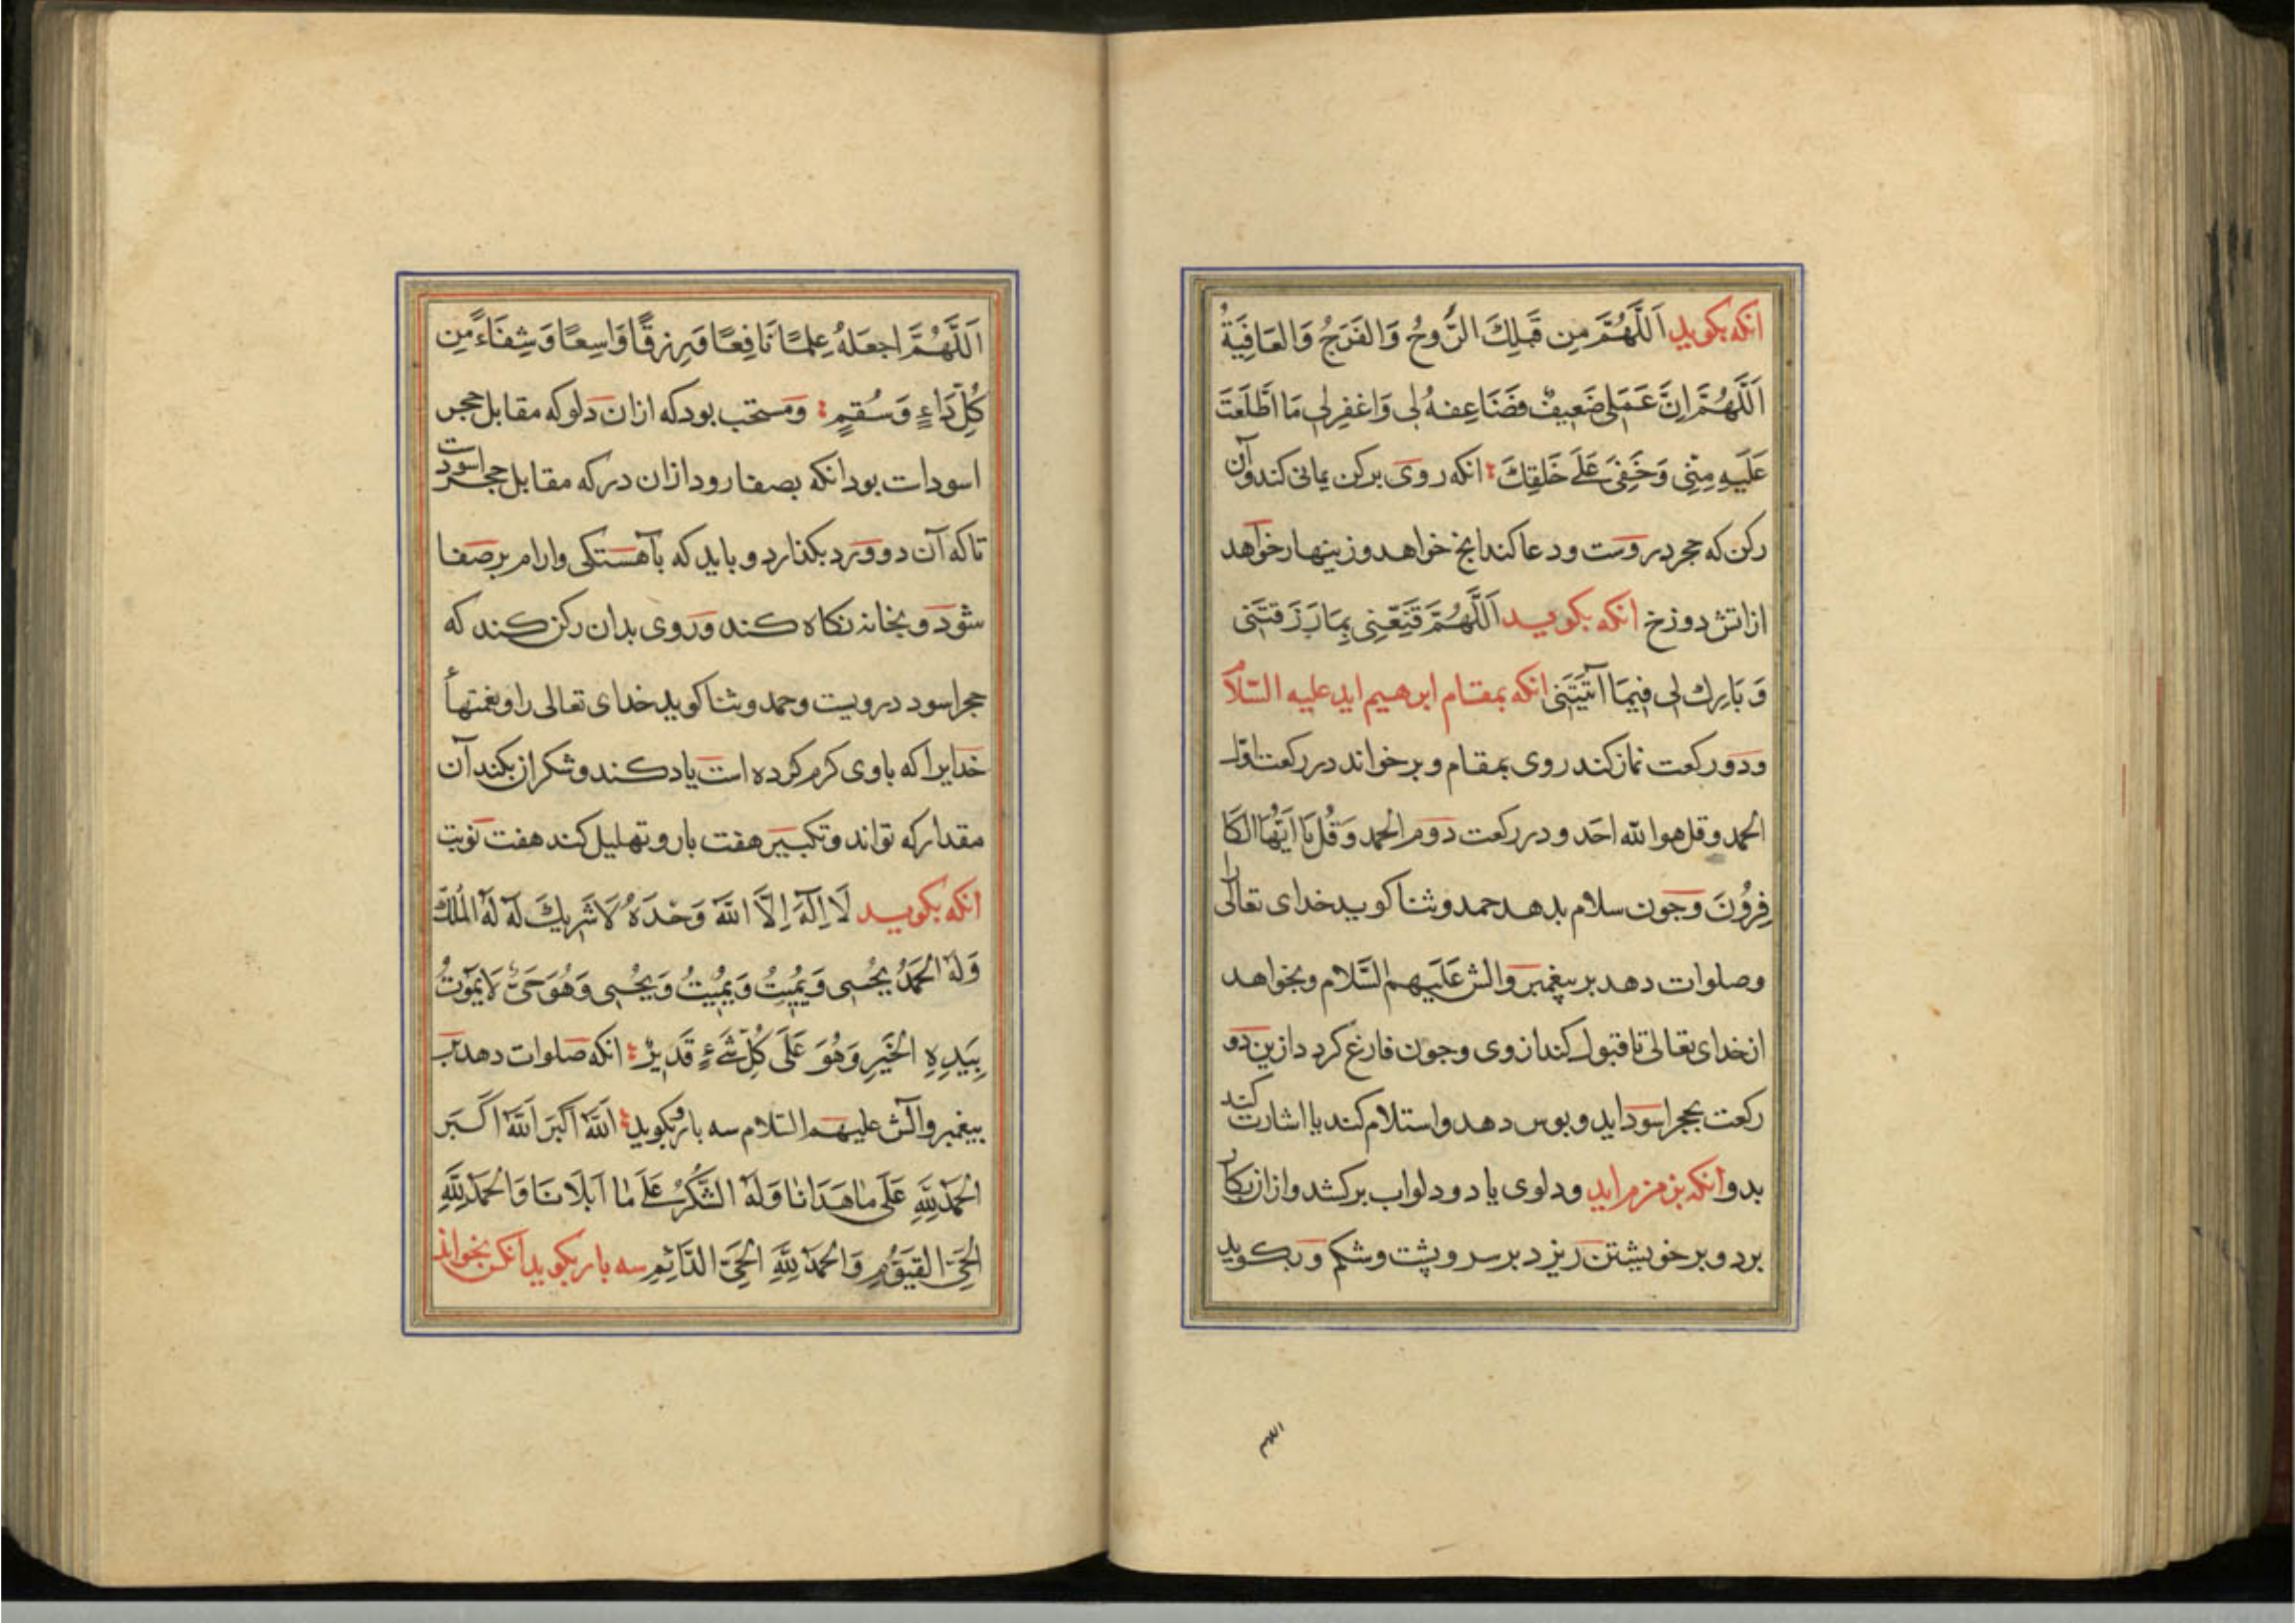 انکه بکوید اَللّٰهُمَّ مِن قَبلِكَ الرَّوحُ وَالفَرَجُ وَالعَافِیَةُ
اَللّٰهُمَّ اِنَّ عَمَلی ضَعِیفٌ فَضَاعِفهُ لی وَاغفِرلی مَا اطَّلَعتَ
عَلَیهِ مِنّی وَخَفِیَ عَلَی خَلقِكَ انکه روی برکن یمانی کند وآن
رکن که حجر دروست ودعا کند انج خواهد وزینهار خواهد
از اتش دوزخ انکه بکوید اَللّٰهُمَّ قَنِّعنِی بِمَا رَزَقتَنی
وَ بَارِك لی فِیمَا آتَیتَنی انکه بمقام ابرهیم اید علیه السّلام
ودو رکعت نماز کند روی بمقام و برخواند در رکعت اوّل
الحمد وقل هوا للّه احَد و در رکعت دوم الحمد وَقُل یَا اَیُّهَا الکَا
فِرُونَ وجون سلام بدهد حمد وثنا کوید خدای تعالی را
وصلوات دهد بر پیغمبر والش عَلَیهم السَّلام وبخواهد
از خدای تعالی تا قبول کند از وی وجون فارغ کردد ازین دو
رکعت بحجر اسود اید و بوس دهد واستلام کند یا اشارت کند
بدو انکه بزمزم اید ودلوی یا دو دلو اب برکشد وازان بکار
برد و بر خویشتن ریزد بر سر و پشت وشکم و بکوید
اللهم
اَللّٰهُمَّ اجعَلهُ عِلمًا نَافِعًا وَ رِزقًا وَاسِعًا وَ شِفَاءً مِن
کُلِّ دَاءٍ وَ سُقمٍ ومستحب بود که ازان دلو که مقابل حجر
اسودات بود انکه بصفا رود ازان در که مقابل حجر اسودست
تا که آن دو ورد بکذارد و باید که بآهستکی وارام بر صفا
شود و بخانه نکاه کند و روی بدان رکن کند که
حجر اسود درویست وحمد وثنا کوید خدای تعالی را ونعمتهأ
خدایرا که باوی کرم کرده است یاد کند وشکر ازبکند آن
مقدار که تواند وتکبیر هفت بار و تهلیل کند هفت نوبت
انکه بکوید لَا اِلٰهَ اِلَّا اللّٰهَ وَحْدَهُ لَا شَرِیكَ لَهُ لَهُ المُلكُ
وَلَهُ الحَمدُ یُحیِی وَیُمِیتُ وَیُمِیتُ وَیُحیِی وَهُوَ حَیٌّ لَا یَمُوتُ
بِیَدِهِ الخَیرِ وَهُوَ عَلَی کُلِّ شَیءٍ قَدِیرٌ انکه صلوات دهد بر
پیغمبر وآلش علیهم السّلام سه بار بکوید اَللّٰهُ اَکبَر اَللّٰهُ اَکبَر
الحَمدُ لِلّٰهِ عَلَی مَا هَدَانَا وَلَهُ الشُّکرُ عَلَی مَا اَبلَانَا وَالحَمدُ لِلّٰهِ
الحَیِّ القَیُّومِ وَالحَمدُ لِلّٰهِ الحَیِّ الدَّائِمِ سه بار بکوید انکه بخواند